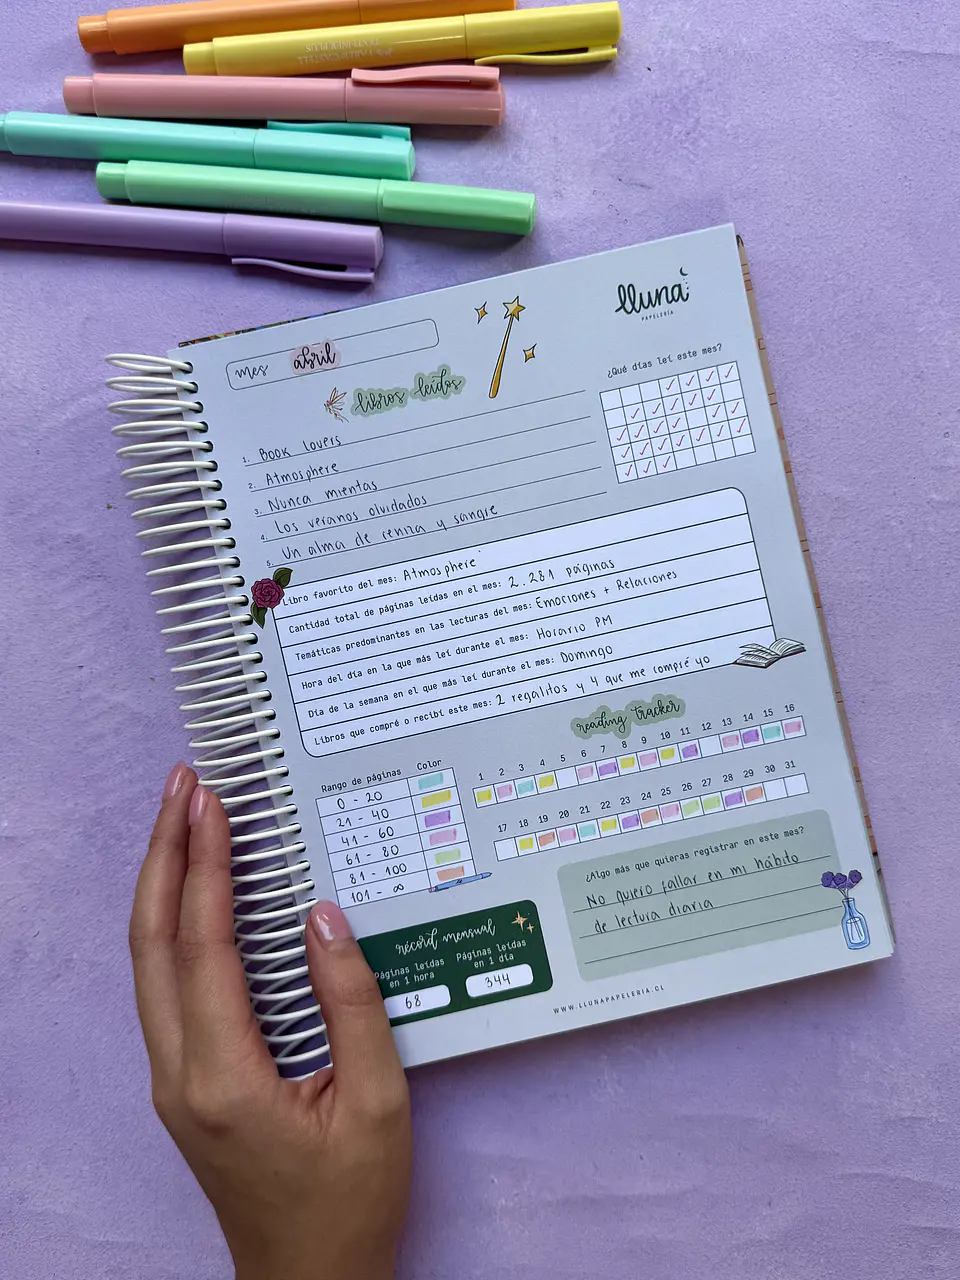 lluna
PAPELERÍA
mes abril
libros leídos
¿Qué días leí este mes?
1. Book lovers
2. Atmosphere
3. Nunca mientas
4. Los veranos olvidados
5. Un alma de reniza y sangre
Libro favorito del mes: Atmosphere
Cantidad total de páginas leídas en el mes: 2.281 páginas
Temáticas predominantes en las lecturas del mes: Emociones + Relaciones
Hora del día en la que más leí durante el mes: Horario PM
Día de la semana en el que más leí durante el mes: Domingo
Libros que compré o recibí este mes: 2 regalitos y 4 que me compré yo
reading tracker
Rango de páginas Color
0 - 20
21 - 40
41 - 60
61 - 80
81 - 100
101 - ∞
1 2 3 4 5 6 7 8 9 10 11 12 13 14 15 16
17 18 19 20 21 22 23 24 25 26 27 28 29 30 31
récord mensual
Páginas leídas en 1 hora
68
Páginas leídas en 1 día
344
¿Algo más que quieras registrar en este mes?
No quiero fallar en mi hábito
de lectura diaria
WWW.LLUNAPAPELERIA.CL